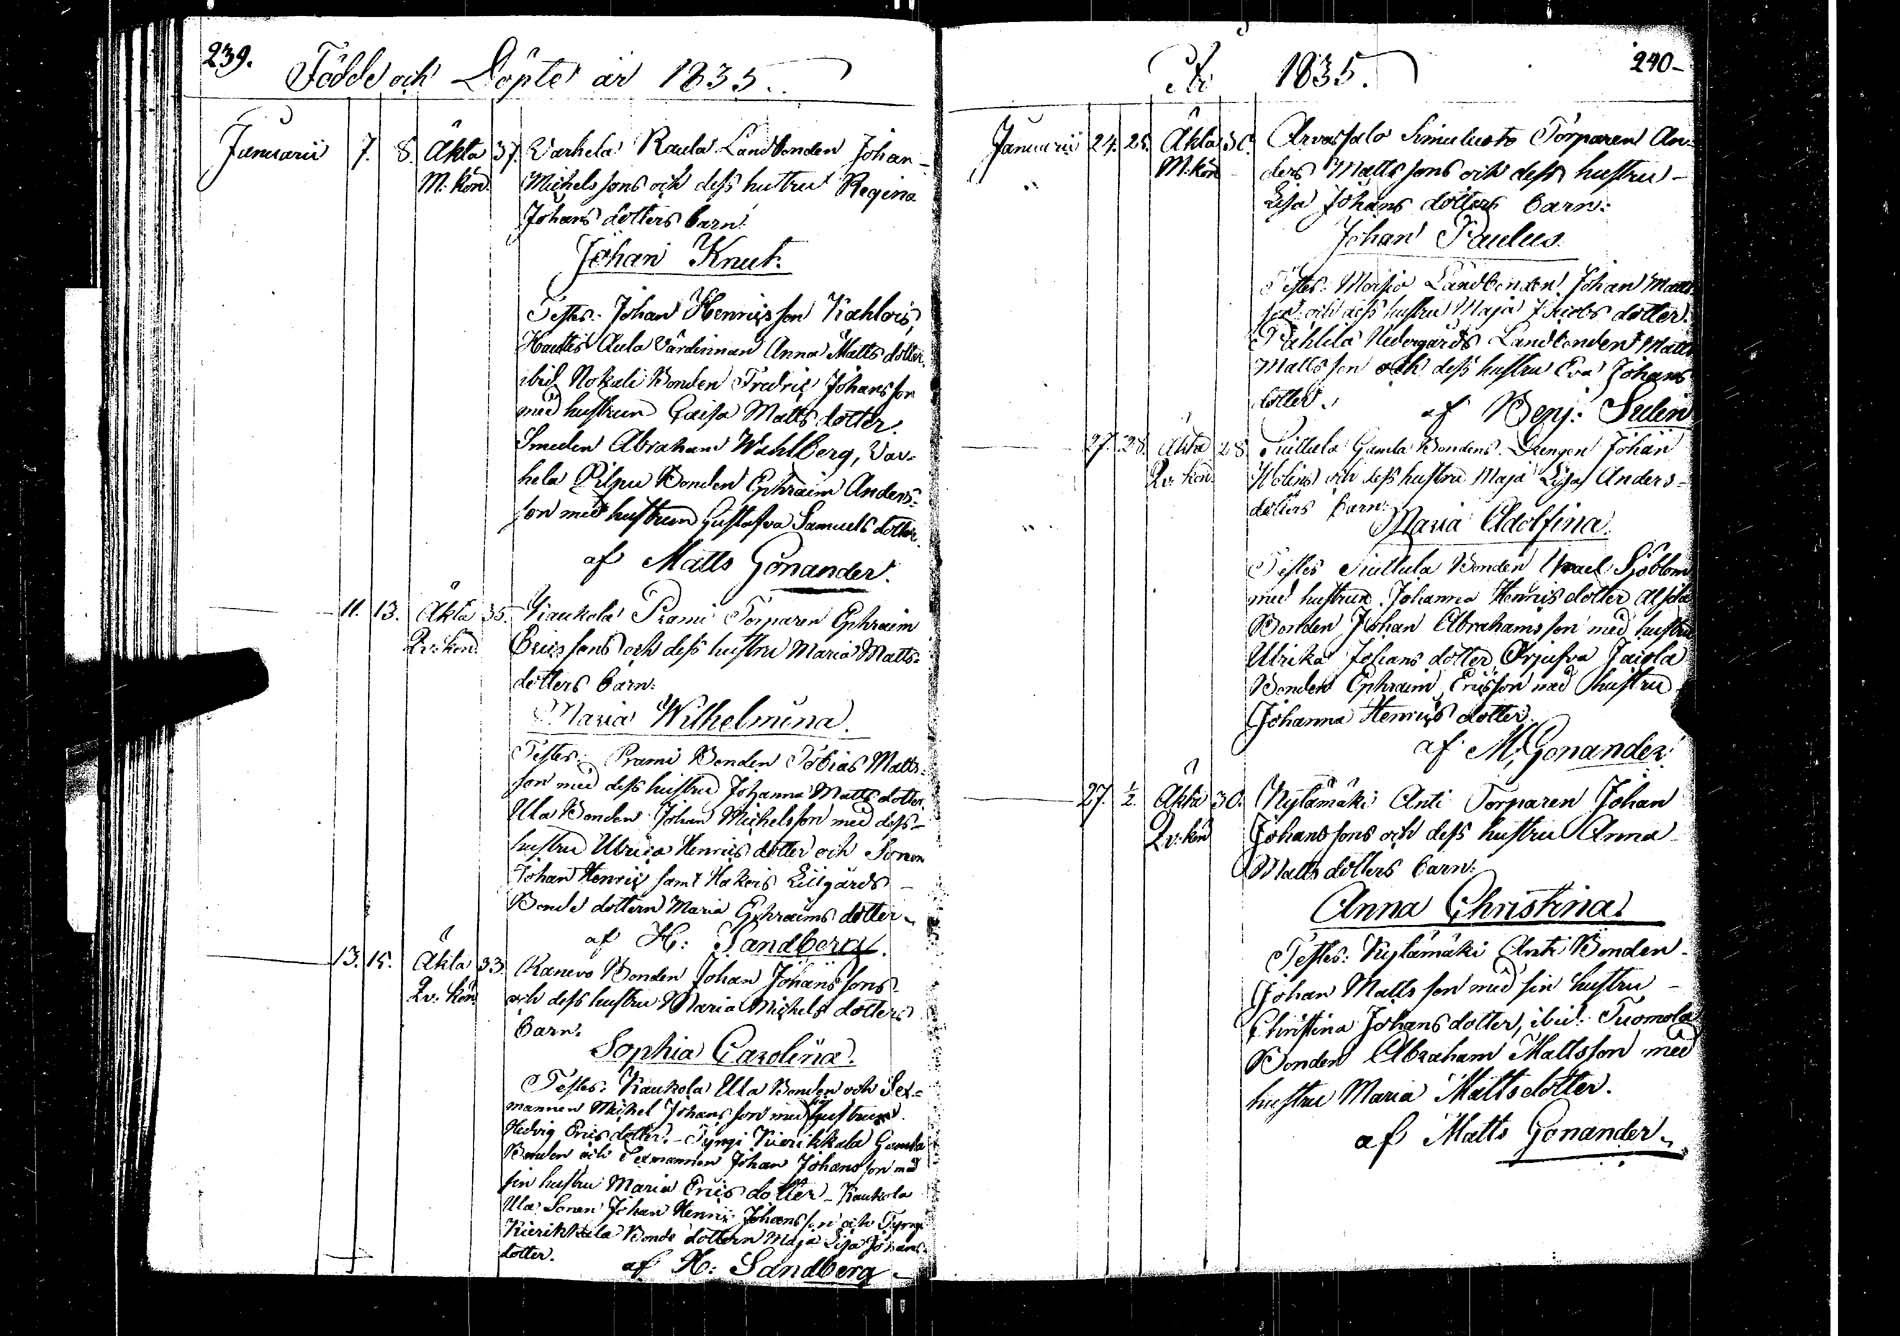 239.
Födde och Döpte år 1835.
Januarii 7. 8. Äkta 37. Varhela Raula Landbonden Johan
M. kön. Michelssons och dess hustru Regina
Johans dotters barn:
Johan Knut.
Testes: Johan Henricsson Kahlois,
Hautis Aula Värdinnan Anna Matts dotter
ibid. Nokali Bonden Fredric Johansson
med hustrun Caisa Matts dotter.
Smeden Abraham Wahlberg, Var-
hela Pilpu Bonden Ephraim Anders-
son med hustrun Gustafva Samuels dotter.
af Matts Gonander.
11. 13. Äkta 35. Kaukola Prami Torparen Ephraim
Qv: kön. Ericssons och dess hustru Maria Matts-
dotters barn:
Maria Wilhelmina.
Testes: Prami Bonden Tobias Matts-
son med dess hustru Johanna Matts dotter,
Ula Bonden Johan Michelsson med dess
hustru Ulrica Henrics dotter och Sonen
Johan Henric samt Hakois Lillgårds
Bonde dottern Maria Ephraims dotter
af H: Sandberg.
13. 15. Äkta 33. Kanevo Bonden Johan Johanssons
Qv: kön och dess hustru Maria Michels dotters
barn.
Sophia Carolina.
Testes: Kaukola Ula Bonden och Sex-
mannen Michel Johansson med hustrun
Hedvig Erics dotter. – Tyrngi Kierikkala Gamla
Bonden och Sexmannen Johan Johansson med
sin hustru Maria Erics dotter – Kaukola
Ula Sonen Johan Henric Johansson och
Kierikkala Bonde dottern Maja Lisa Johans-
dotter.
af H: Sandberg
240
1835.
Januarii 24. 25. Äkta 30. Arvassalo Simulusto Torparen An-
M: kön ders Mattssons och dess hustru
Lisa Johans dotters barn:
Johan Paulus.
Testes: Moisio Landbonden Johan Matts
son och dess hustru Maja Jacobs dotter.
Pahlila Nedergårds Landbonden Matts
Mattsson och dess hustru Eva Johans
dotter. af Benj: Sulin
27. 28. Äkta 28. Siuttula Gamla Bondens Drengen Johan
Qv: kön. Holins och dess hustru Maja Lisa Anders-
dotters barn:
Maria Adolfina.
Testes Siuttula Bonden Israel Sjöblom
med hustrun Johanna Henrics dotter
Bonden Johan Abrahamsson med hustru
Ulrika Johans dotter, Jaigla
Bonden Ephraim Ericsson med hustru
Johanna Henrics dotter.
af M. Gonander.
27. 1/2. Äkta 30. Kylämäki Anti Torparen Johan
Qv: kön Johanssons och dess hustru Anna
Matts dotters barn:
Anna Christina.
Testes: Kylämäki Anti Bonden
Johan Mattsson med sin hustru
Christina Johans dotter, ibid. Tuomola
Bonden Abraham Mattsson med
hustru Maria Mattsdotter.
af Matts Gonander.